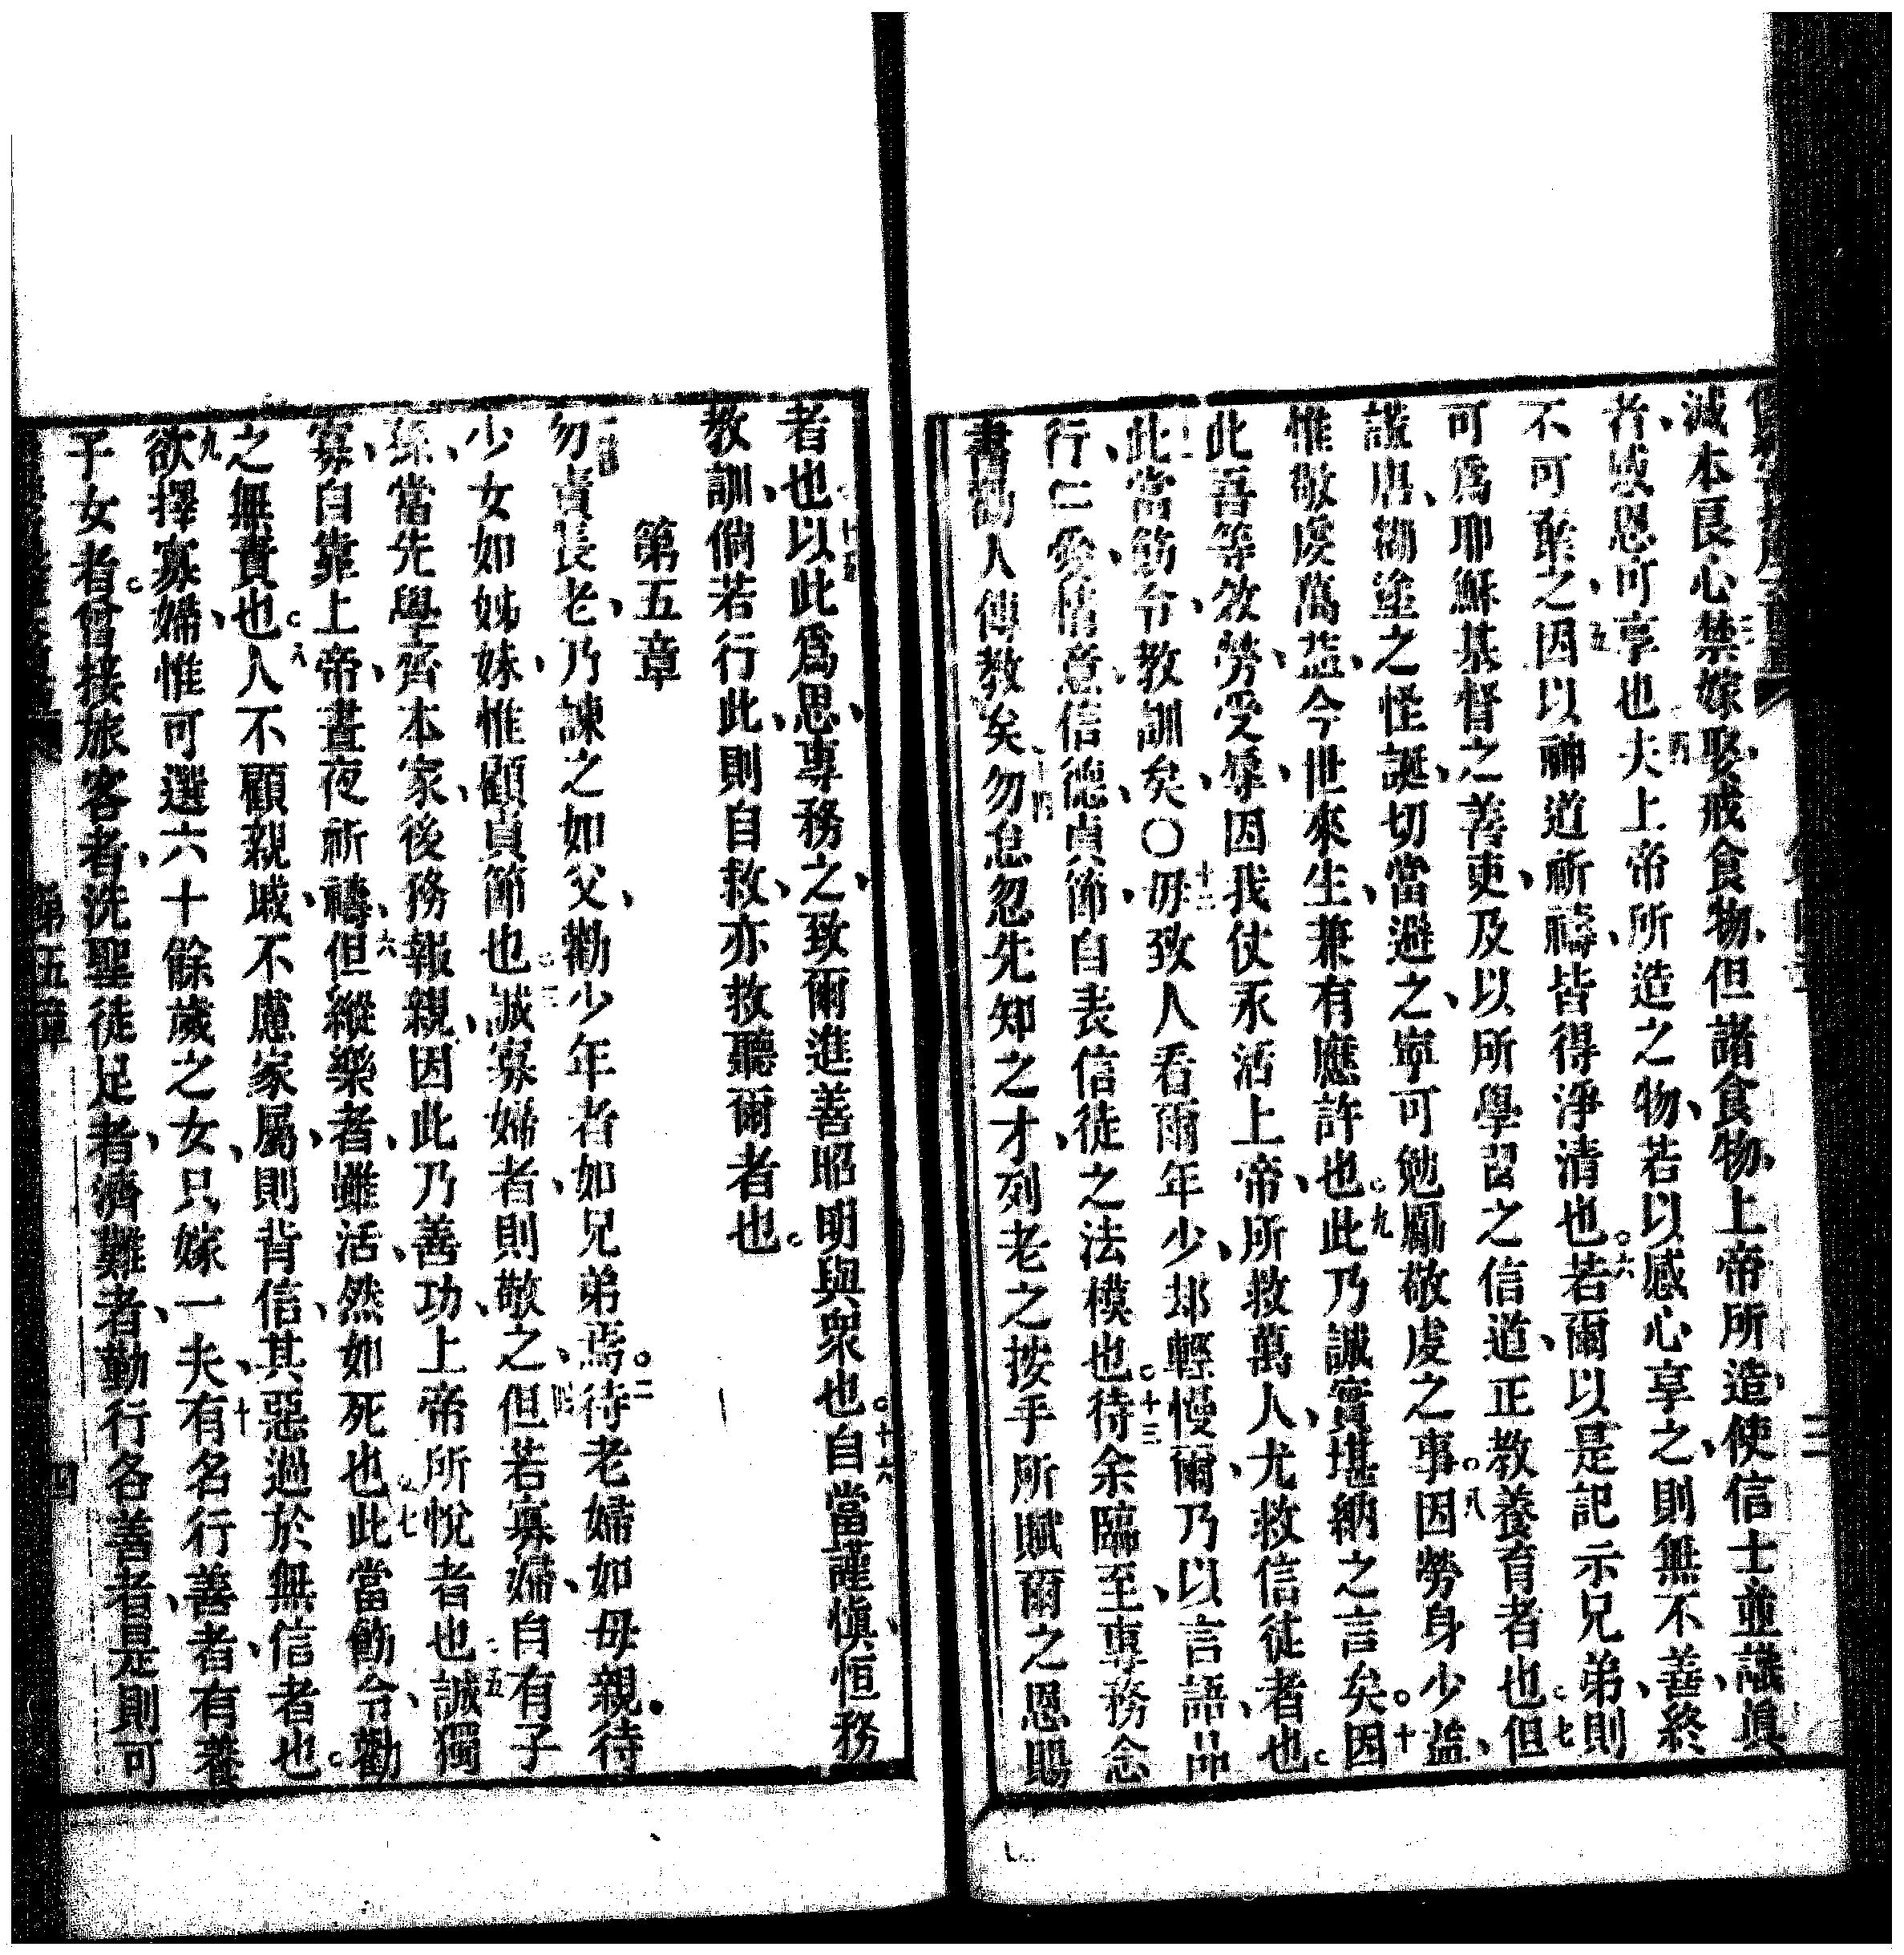 滅本良心三禁嫁娶、戒食物、但諸食物、上帝所造、使信士並識眞
者、感恩可享也四夫上帝所造之物、若以感心享之、則無不善、終
不可敢之、五因以神道祈禱、皆得淨清也。六若爾以是記示兄弟、則
可爲耶穌基督之善吏、及以所學習之信道、正教養育者也七但
謊唐、揚塗之怪誕、切當避之、寧可勉勵敬虔之事。八因勞身少益、
惟敬虔萬益、今世來生、兼有應許也。九此乃誠實堪納之言矣。十因
此吾等效勞、受辱、因我仗永活上帝、所救萬人、尤救信徒者也。
十一此當飭令、教訓矣、〇十二毋致人看爾年少、邦輕慢爾、乃以言語、品
行、仁愛、情意、信德、貞節、自表信徒之法模也。十三待余臨至、專務念
書勸人傳教矣十四勿怠忽先知之才、列老之按手所賦爾之恩賜
者也十五以此爲思、專務之、致爾進善昭明與衆也。十六自當謹愼、恒務
教訓、倘若行此、則自救、亦救聽爾者也。
第五章
一節勿責長老、乃諫之如父、勸少年者如兄弟焉。二待老婦如母親。待
少女如姊妹、惟顧貞節也。三誠寡婦者、則敬之、四但若寡婦、自有子
孫、當先學齊本家、後務報親、因此乃善功、上帝所悅者也。五誠獨
寡、自靠上帝、晝夜祈禱、六但縱樂者、雖活、然如死也。七此當飭令、勸
之無責也。八人不顧親戚、不慮家屬、則背信、其惡過於無信者也。
九欲擇寡婦、惟可選六十餘歲之女、只嫁一夫、十有名行善者、有養
子女者。曾接旅客者、洗聖徒足者、濟難者、勤行各善者、是則可
第五章
四